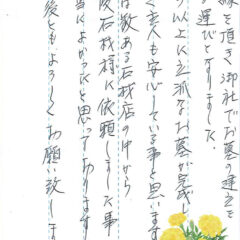 縁を頂き御社でお墓の建立を
運びとなりました。
う以上に立派なお墓が完成し
く主人も安心している事と思います
は数ある石材店の中から
石材様に依頼しました事
当によかったと思っております
後ともよろしくお願い致しま